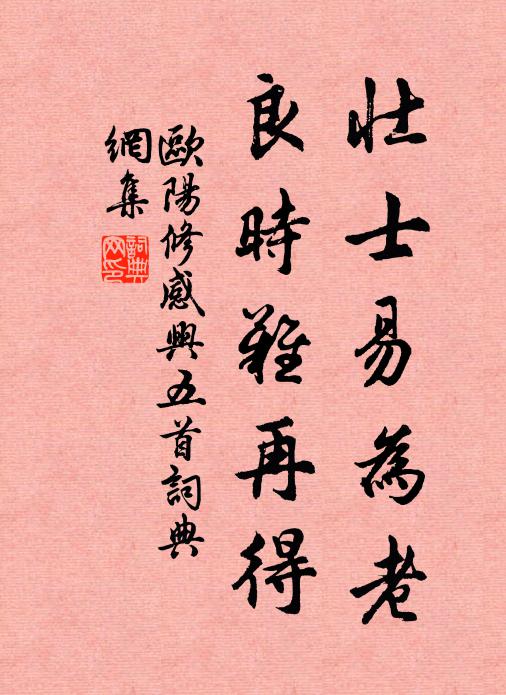 壯士易為老
良時難再得
歐陽修感興五首詞典
網集
詞典
网印